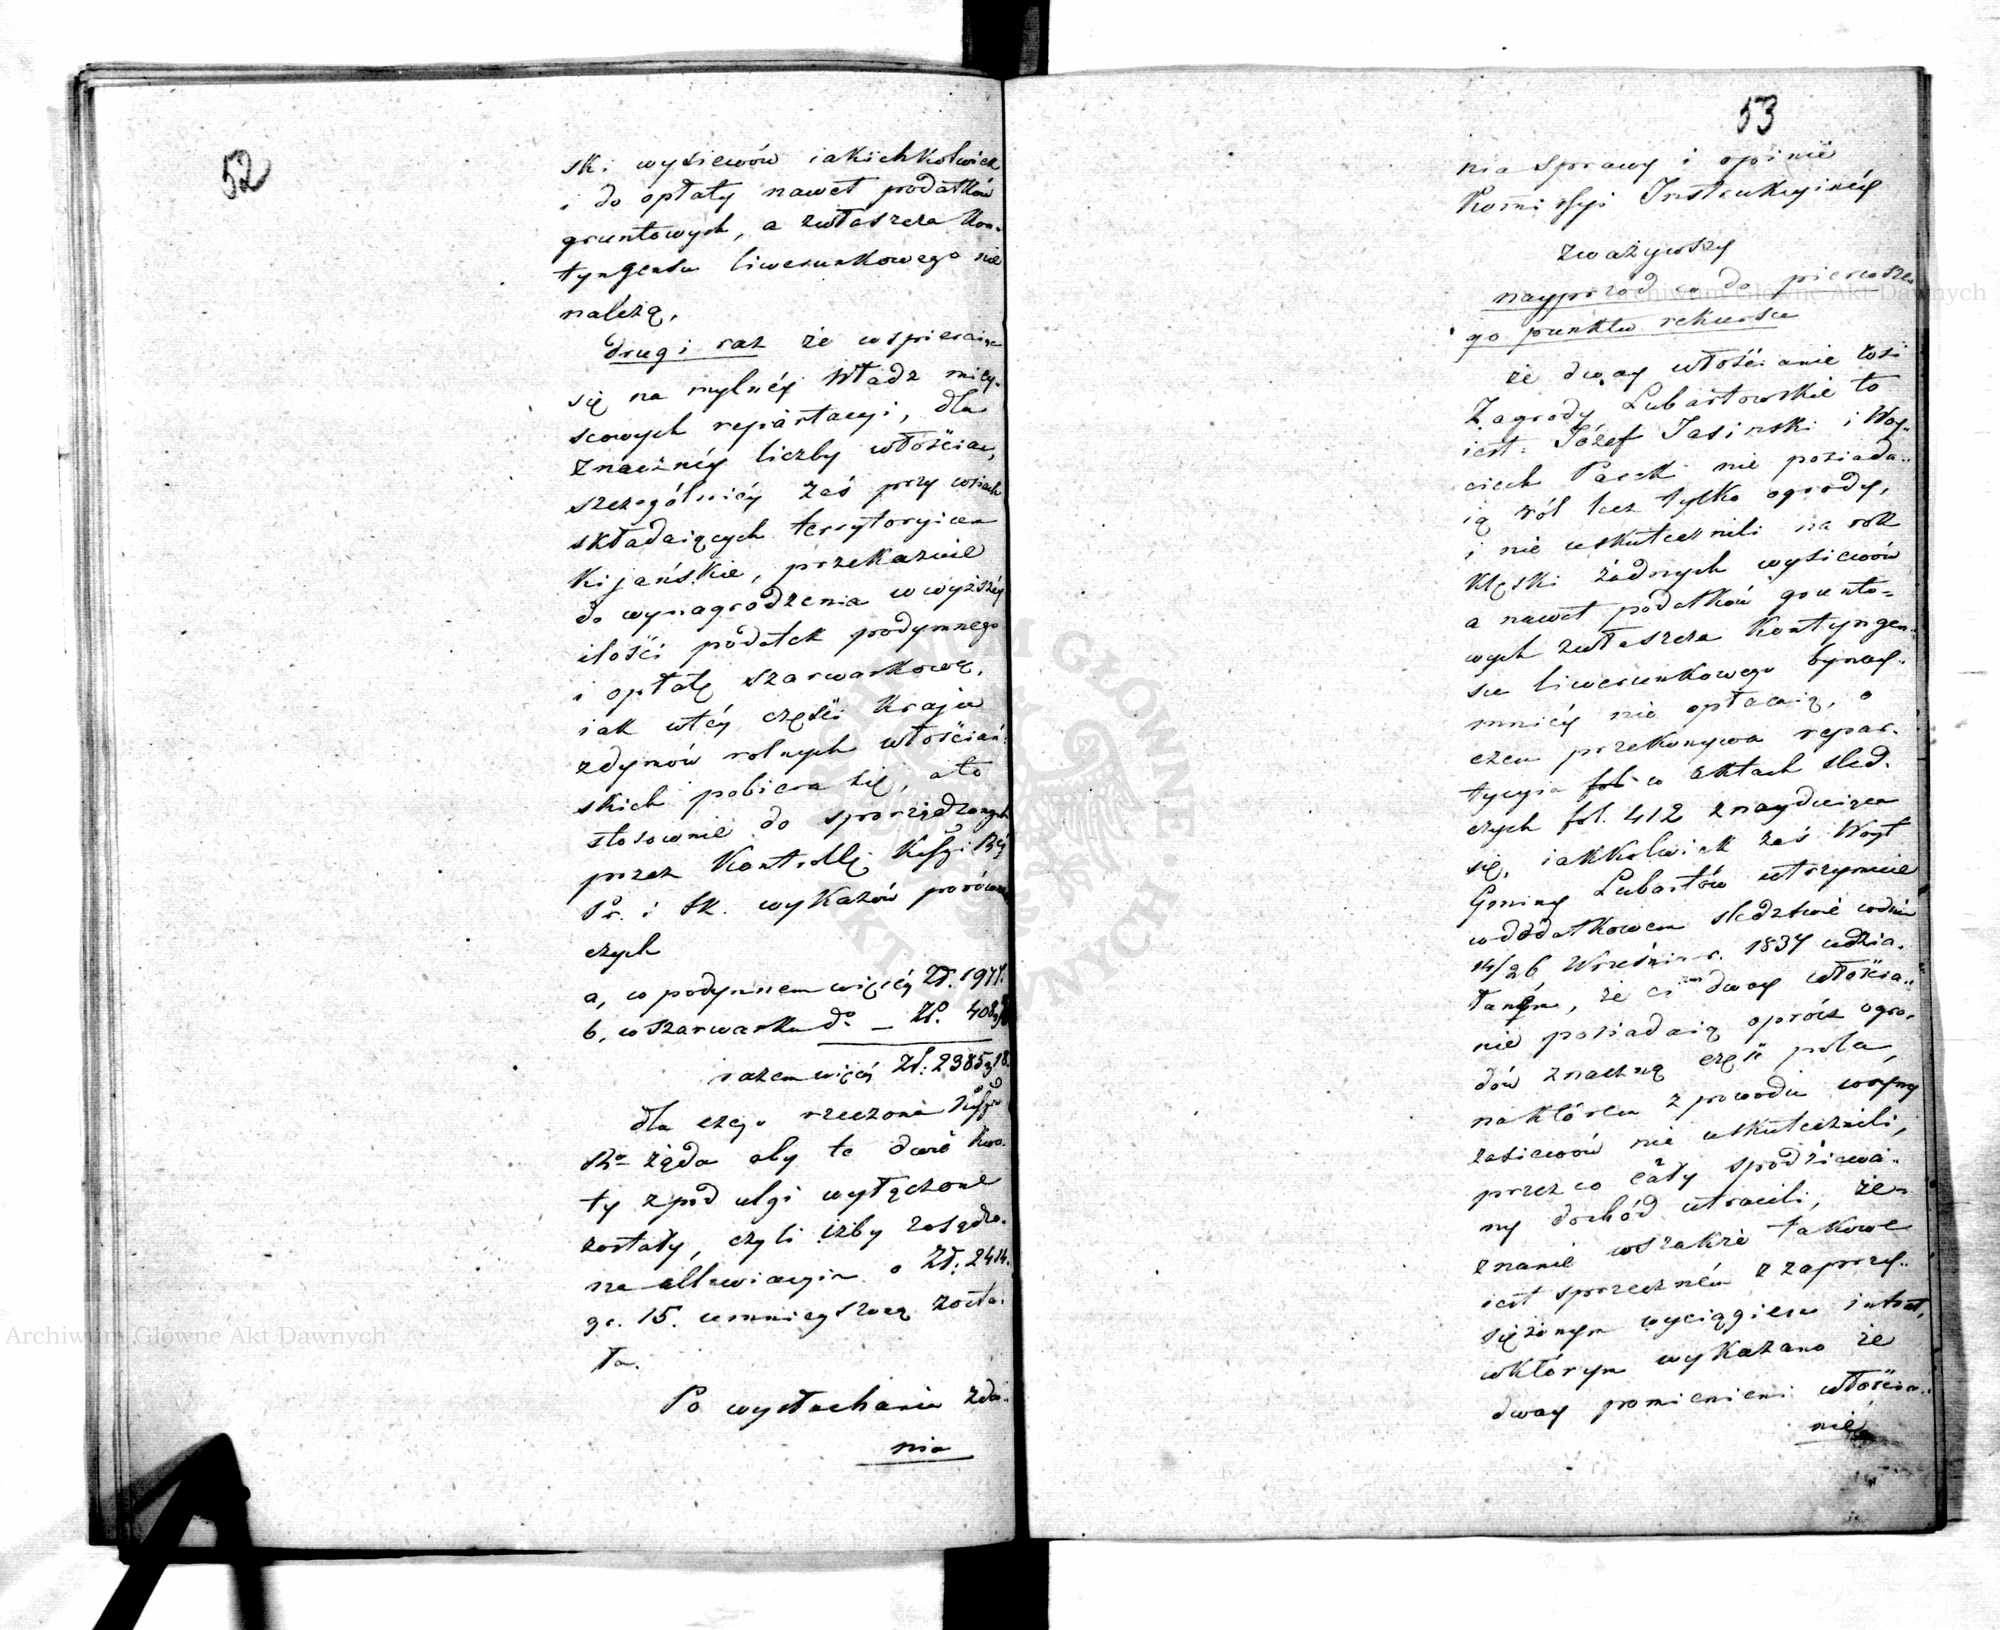 52
ski wysiewów iakichkolwiek
i do opłaty nawet podatków
gruntowych, a zwłaszcza kon-
tyngensu liwerunkowego nie
należą,
drugi raz że wspieraiąc
się na mylnéy Władz miey-
scowych repartacyi, dla
znacznéy liczby włościan,
szczególniéy zaś przy wsiach
składaiących terrytoryum
Kijańskie, przekazuie
do wynagrodzenia w wyższéy
ilości podatek podymnego
i opłatę szarwarkową,
iak w téy części Kraju
z dymów rolnych włościań-
skich pobiera się, a to
stosownie do sporządzonych
przez Kontrollę
Pr. i Sk. wykazów porównaw
czych
a, w podymnem więcéy Zł. 1977.
b, w szarwarku do – Zł. 408
razem więcéy Zł: 2385 18.
dla czego rzeczona
żąda aby te dwie kwo-
ty z pod ulgi wyłączone
zostały, czyli iżby zasądzo-
na allewiacyia o Zł. 2414.
gr. 15. umnieyszoną zosta-
ła.
Po wysłuchaniu zda-
nia
53
nia sprawy i opinii
Kommissyi Instrukcyinéy
zważywszy
nayprzód co do pierwsze-
go punktu rekursu
że dway włościanie wsi
Zagrody Lubartowskie to
iest: Józef Jasinski i Woy-
ciech Pasek nie posiada-
ią ról lecz tylko ogrody,
i nie uskutecznili na rok
klęski żadnych wysiewów
a nawet podatków grunto-
wych zwłaszcza Kontyngen-
su liwerunkowego bynay-
mniéy nie opłacaią, o
czem przekonywa repar-
tycyia fol w aktach śled-
czych fol. 412 znayduiąca
się, iakkolwiek zaś Woyt
Gminy Lubartów utrzymuie
w dodatkowem śledztwie w dniu
14/26 Września r. 1837 udzia-
łanym, że ci dway włościa-
nie posiadaią oprócz ogro-
dów znaczną część pola,
na którem z powodu woyny
zasiewów nie uskutecznili,
przez co cały spodziewa-
ny dochód utracili, że-
znanie wszakże takowe
iest sprzeczném z zaprzy-
siężonym wyciągiem intrat,
w którym wykazano że
dway pomienieni włościa-
nie
Archiwum Główne Akt Dawnych
Archiwum Główne Akt Dawnych
ARCHIWUM GŁÓWNE AKT DAWNYCH